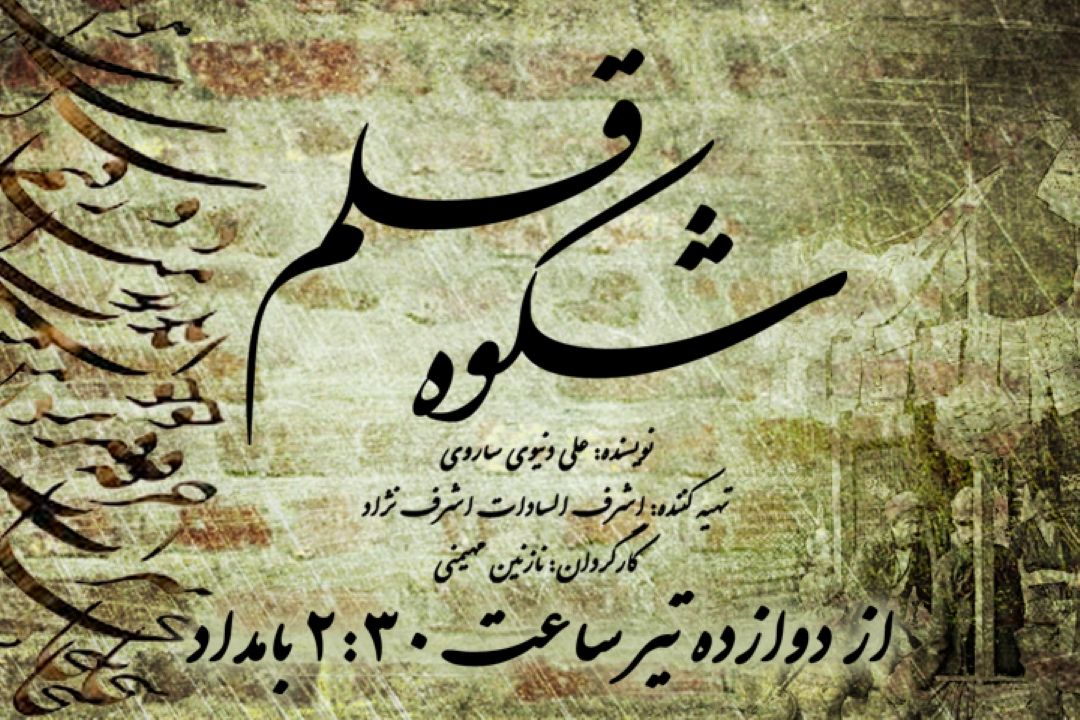 شکوه قلم
نویسنده: علی دنیوی ساروی
تهیه کننده: اشرف السادات اشرف نژاد
کارگردان: نازنین مهیمنی
از دوازده تیر ساعت ۲:۳۰ بامداد